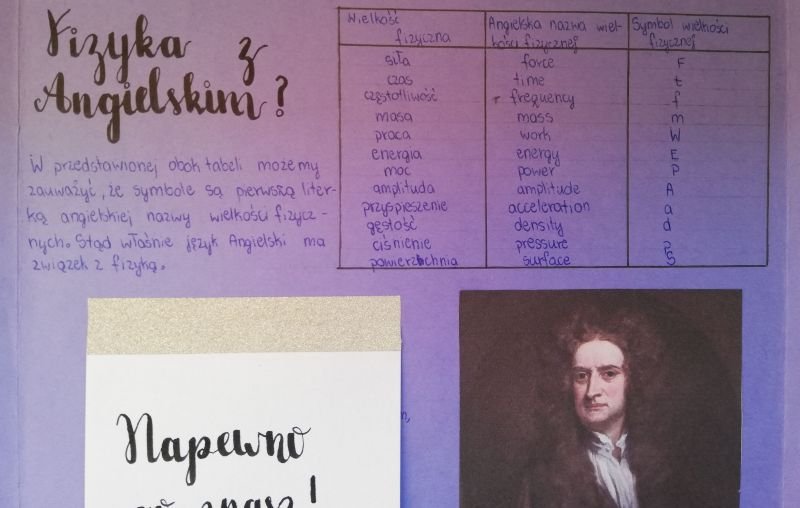 Fizyka z
Angielskim?
W przedstawionej obok tabeli możemy
zauważyć, że symbole są pierwszą liter-
ką angielskiej nazwy wielkości fizycz-
nych. Stąd właśnie język Angielski ma
związek z fizyką.
Wielkość fizyczna | Angielska nazwa wiel-kości fizycznej | Symbol wielkości fizycznej
siła | force | F
czas | time | t
częstotliwość | frequency | f
masa | mass | m
praca | work | W
energia | energy | E
moc | power | P
amplituda | amplitude | A
przyspieszenie | acceleration | a
gęstość | density | d
ciśnienie | pressure | P
powierzchnia | surface | S
Napewno
znasz!